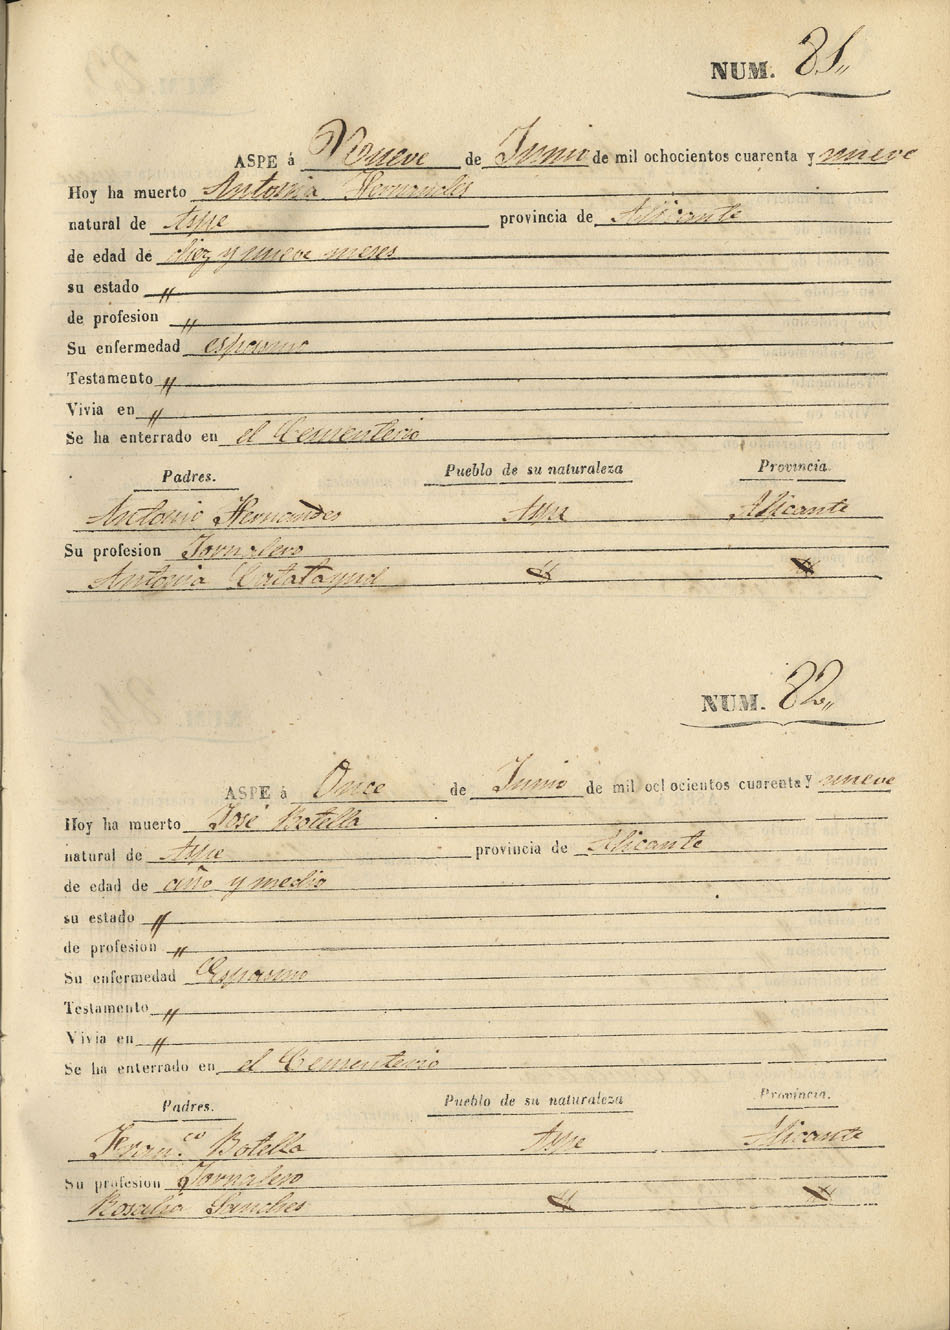 NUM. 81,,
ASPE á Nueve de Junio de mil ochocientos cuarenta y nueve
Hoy ha muerto Antonia Hernandes
natural de Aspe provincia de Alicante
de edad de diez y nueve meses
su estado "
de profesion "
Su enfermedad espasmo
Testamento "
Vivia en "
Se ha enterrado en el Cementerio
Padres. Pueblo de su naturaleza Provincia.
Antonio Hernandes Aspe Alicante
Su profesion Jornalero
Antonia Calatayud " "
NUM. 82,,
ASPE á Once de Junio de mil ochocientos cuarenta y nueve
Hoy ha muerto José Botella
natural de Aspe provincia de Alicante
de edad de año y medio
su estado "
de profesion "
Su enfermedad Espasmo
Testamento "
Vivia en "
Se ha enterrado en el Cementerio
Padres. Pueblo de su naturaleza Provincia.
Fran.co Botella Aspe Alicante
Su profesion Jornalero
Rosalia Sanches " "